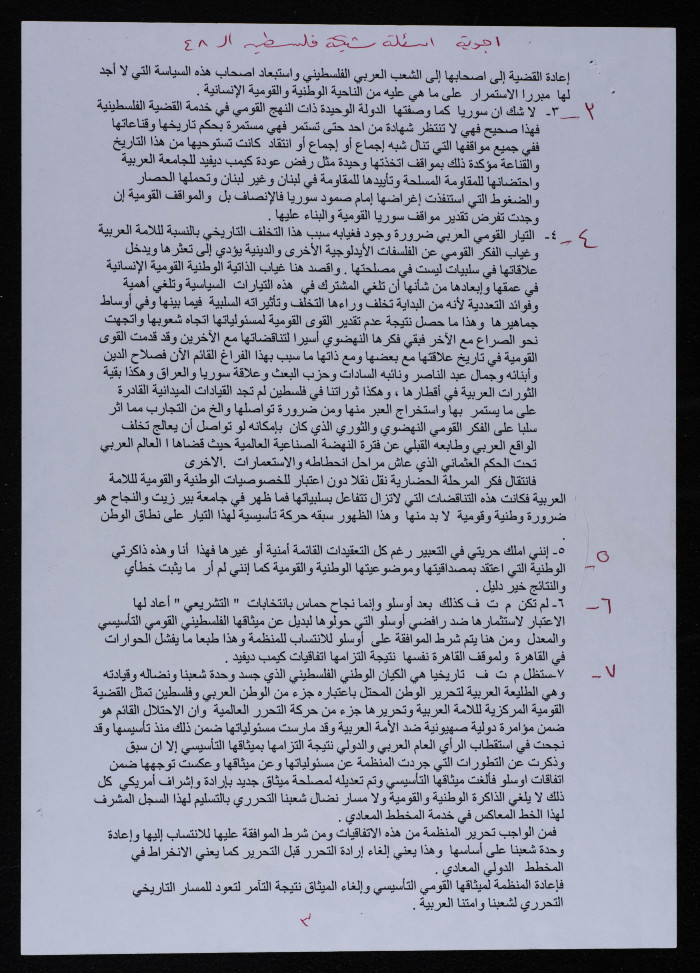 اجوبة اسئلة شبكة فلسطين الـ ٤٨
إعادة القضية إلى اصحابها إلى الشعب العربي الفلسطيني واستبعاد اصحاب هذه السياسة التي لا أجد
لها مبررا الاستمرار على ما هي عليه من الناحية الوطنية والقومية الإنسانية .
٣ـ لا شك ان سوريا كما وصفتها الدولة الوحيدة ذات النهج القومي في خدمة القضية الفلسطينية
فهذا صحيح فهي لا تنتظر شهادة من احد حتى تستمر فهي مستمرة بحكم تاريخها وقناعاتها
ففي جميع مواقفها التي تنال شبه إجماع أو إجماع أو انتقاد كانت تستوحيها من هذا التاريخ
والقناعة مؤكدة ذلك بمواقف اتخذتها وحيدة مثل رفض عودة كيمب ديفيد للجامعة العربية
واحتضانها للمقاومة المسلحة وتأييدها للمقاومة في لبنان وغير لبنان وتحملها الحصار
والضغوط التي استنفذت إغراضها إمام صمود سوريا فالإنصاف بل والمواقف القومية إن
وجدت تفرض تقدير مواقف سوريا القومية والبناء عليها .
٤ـ التيار القومي العربي ضرورة وجود فغيابه سبب هذا التخلف التاريخي بالنسبة للامة العربية
وغياب الفكر القومي عن الفلسفات الأيدلوجية الأخرى والدينية يؤدي إلى تعثرها ويدخل
علاقاتها في سلبيات ليست في مصلحتها . واقصد هنا غياب الذاتية الوطنية القومية الإنسانية
في عمقها وإبعادها من شأنها أن تلغي المشترك في هذه التيارات السياسية وتلغي أهمية
وفوائد التعددية لأنه من البداية تخلف وراءها التخلف وتأثيراته السلبية فيما بينها وفي أوساط
جماهيرها وهذا ما حصل نتيجة عدم تقدير القوى القومية لمسئولياتها اتجاه شعوبها واتجهت
نحو الصراع مع الأخر فبقي فكرها النهضوي أسيرا لتناقضاتها مع الآخرين وقد قدمت القوى
القومية في تاريخ علاقتها مع بعضها ومع ذاتها ما سبب بهذا الفراغ القائم الآن فصلاح الدين
وأبنائه وجمال عبد الناصر ونائبه السادات وحزب البعث وعلاقة سوريا والعراق وهكذا بقية
الثورات العربية في أقطارها ، وهكذا ثوراتنا في فلسطين لم تجد القيادات الميدانية القادرة
على ما يستمر بها واستخراج العبر منها ومن ضرورة تواصلها والخ من التجارب مما اثر
سلبا على الفكر القومي النهضوي والثوري الذي كان بإمكانه لو تواصل أن يعالج تخلف
الواقع العربي وطابعه القبلي عن فترة النهضة الصناعية العالمية حيث قضاها ا العالم العربي
تحت الحكم العثماني الذي عاش مراحل انحطاطه والاستعمارات .الاخرى
فانتقال فكر المرحلة الحضارية نقل نقلا دون اعتبار للخصوصيات الوطنية والقومية للامة
العربية فكانت هذه التناقضات التي لاتزال تتفاعل بسلبياتها فما ظهر في جامعة بير زيت والنجاح هو
ضرورة وطنية وقومية لا بد منها وهذا الظهور سبقه حركة تأسيسية لهذا التيار على نطاق الوطن
.
٥ـ إنني املك حريتي في التعبير رغم كل التعقيدات القائمة أمنية أو غيرها فهذا أنا وهذه ذاكرتي
الوطنية التي اعتقد بمصداقيتها وموضوعيتها الوطنية والقومية كما إنني لم أر ما يثبت خطأي
والنتائج خير دليل .
٦ـ لم تكن م ت ف كذلك بعد أوسلو وإنما نجاح حماس بانتخابات " التشريعي " أعاد لها
الاعتبار لاستثمارها ضد رافضي أوسلو التي حولوها لبديل عن ميثاقها الفلسطيني القومي التأسيسي
والمعدل ومن هنا يتم شرط الموافقة على أوسلو للانتساب للمنظمة وهذا طبعا ما يفشل الحوارات
في القاهرة ولموقف القاهرة نفسها نتيجة التزامها اتفاقيات كيمب ديفيد .
٧ـستظل م ت ف تاريخيا هي الكيان الوطني الفلسطيني الذي جسد وحدة شعبنا ونضاله وقيادته
وهي الطليعة العربية لتحرير الوطن المحتل باعتباره جزء من الوطن العربي وفلسطين تمثل القضية
القومية المركزية للامة العربية وتحريرها جزء من حركة التحرر العالمية وان الاحتلال القائم هو
ضمن مؤامرة دولية صهيونية ضد الأمة العربية وقد مارست مسئولياتها ضمن ذلك منذ تأسيسها وقد
نجحت في استقطاب الرأي العام العربي والدولي نتيجة التزامها بميثاقها التأسيسي إلا ان سبق
وذكرت عن التطورات التي جردت المنظمة عن مسئولياتها وعن ميثاقها وعكست توجهها ضمن
اتفاقات اوسلو فألغت ميثاقها التأسيسي وتم تعديله لمصلحة ميثاق جديد بإرادة وإشراف أمريكي كل
ذلك لا يلغي الذاكرة الوطنية والقومية ولا مسار نضال شعبنا التحرري بالتسليم لهذا السجل المشرف
لهذا الخط المعاكس في خدمة المخطط المعادي .
فمن الواجب تحرير المنظمة من هذه الاتفاقيات ومن شرط الموافقة عليها للانتساب إليها وإعادة
وحدة شعبنا على أساسها وهذا يعني إلغاء إرادة التحرر قبل التحرير كما يعني الانخراط في
المخطط الدولي المعادي .
فإعادة المنظمة لميثاقها القومي التأسيسي وإلغاء الميثاق نتيجة التآمر لتعود للمسار التاريخي
التحرري لشعبنا وامتنا العربية .
٣
٣ـ
٤ـ
٥ـ
٦ـ
٧ـ